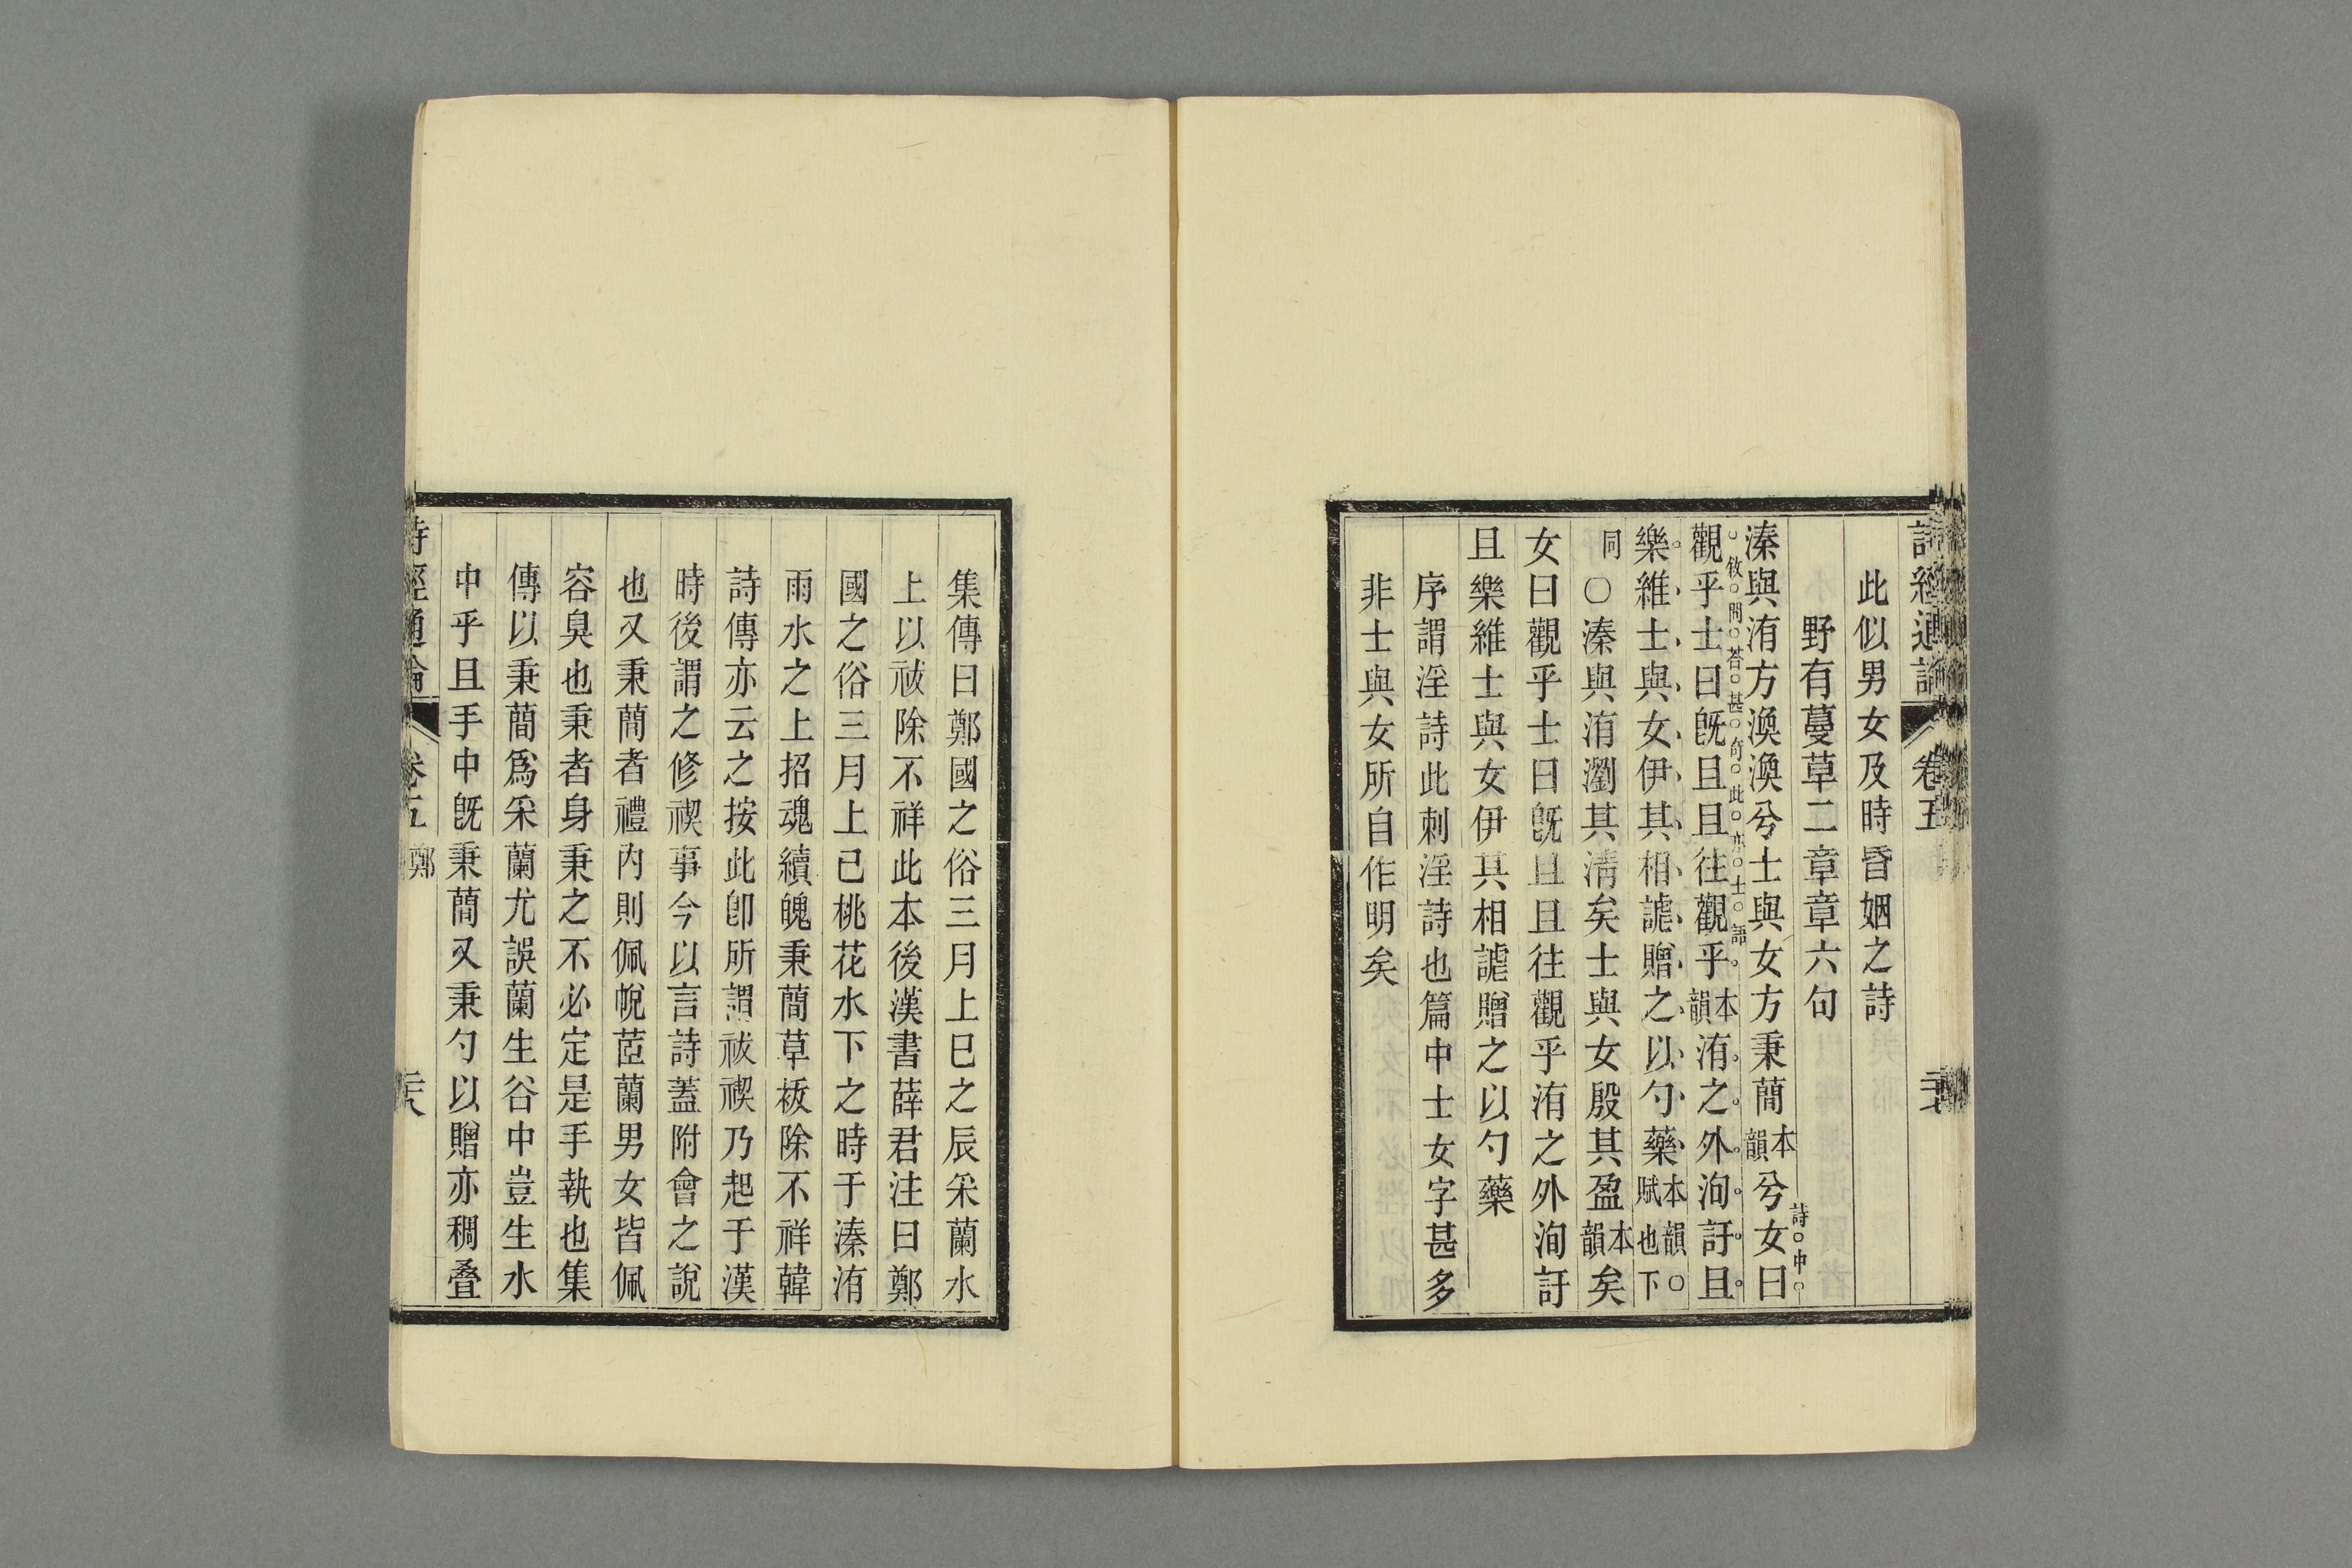 詩經通論 卷五
此似男女及時昏姻之詩
野有蔓草二章章六句
溱與洧方渙渙兮士與女方秉蕑本韻兮女曰
詩中
觀乎士曰旣且且往觀乎本韻洧之外洵訏且
敘問荅甚奇此亦士語
樂維士與女伊其相謔贈之以勺藥本韻○賦也下
同○溱與洧瀏其淸矣士與女殷其盈本韻矣
女曰觀乎士曰旣且且往觀乎洧之外洵訏
且樂維士與女伊其相謔贈之以勺藥
序謂淫詩此刺淫詩也篇中士女字甚多
非士與女所自作明矣
集傳曰鄭國之俗三月上巳之辰采蘭水
上以祓除不祥此本後漢書薛君注曰鄭
國之俗三月上巳桃花水下之時于溱洧
兩水之上招魂續魄秉蕑草祓除不祥韓
詩傳亦云之按此卽所謂祓禊乃起于漢
時後謂之修禊事今以言詩蓋附會之說
也又秉蕑者禮內則佩帨茝蘭男女皆佩
容臭也秉者身秉之不必定是手執也集
傳以秉蕑爲采蘭尤誤蘭生谷中豈生水
中乎且手中旣秉蕑又秉勺以贈亦稠疊
詩經通論 卷五 鄭 二六